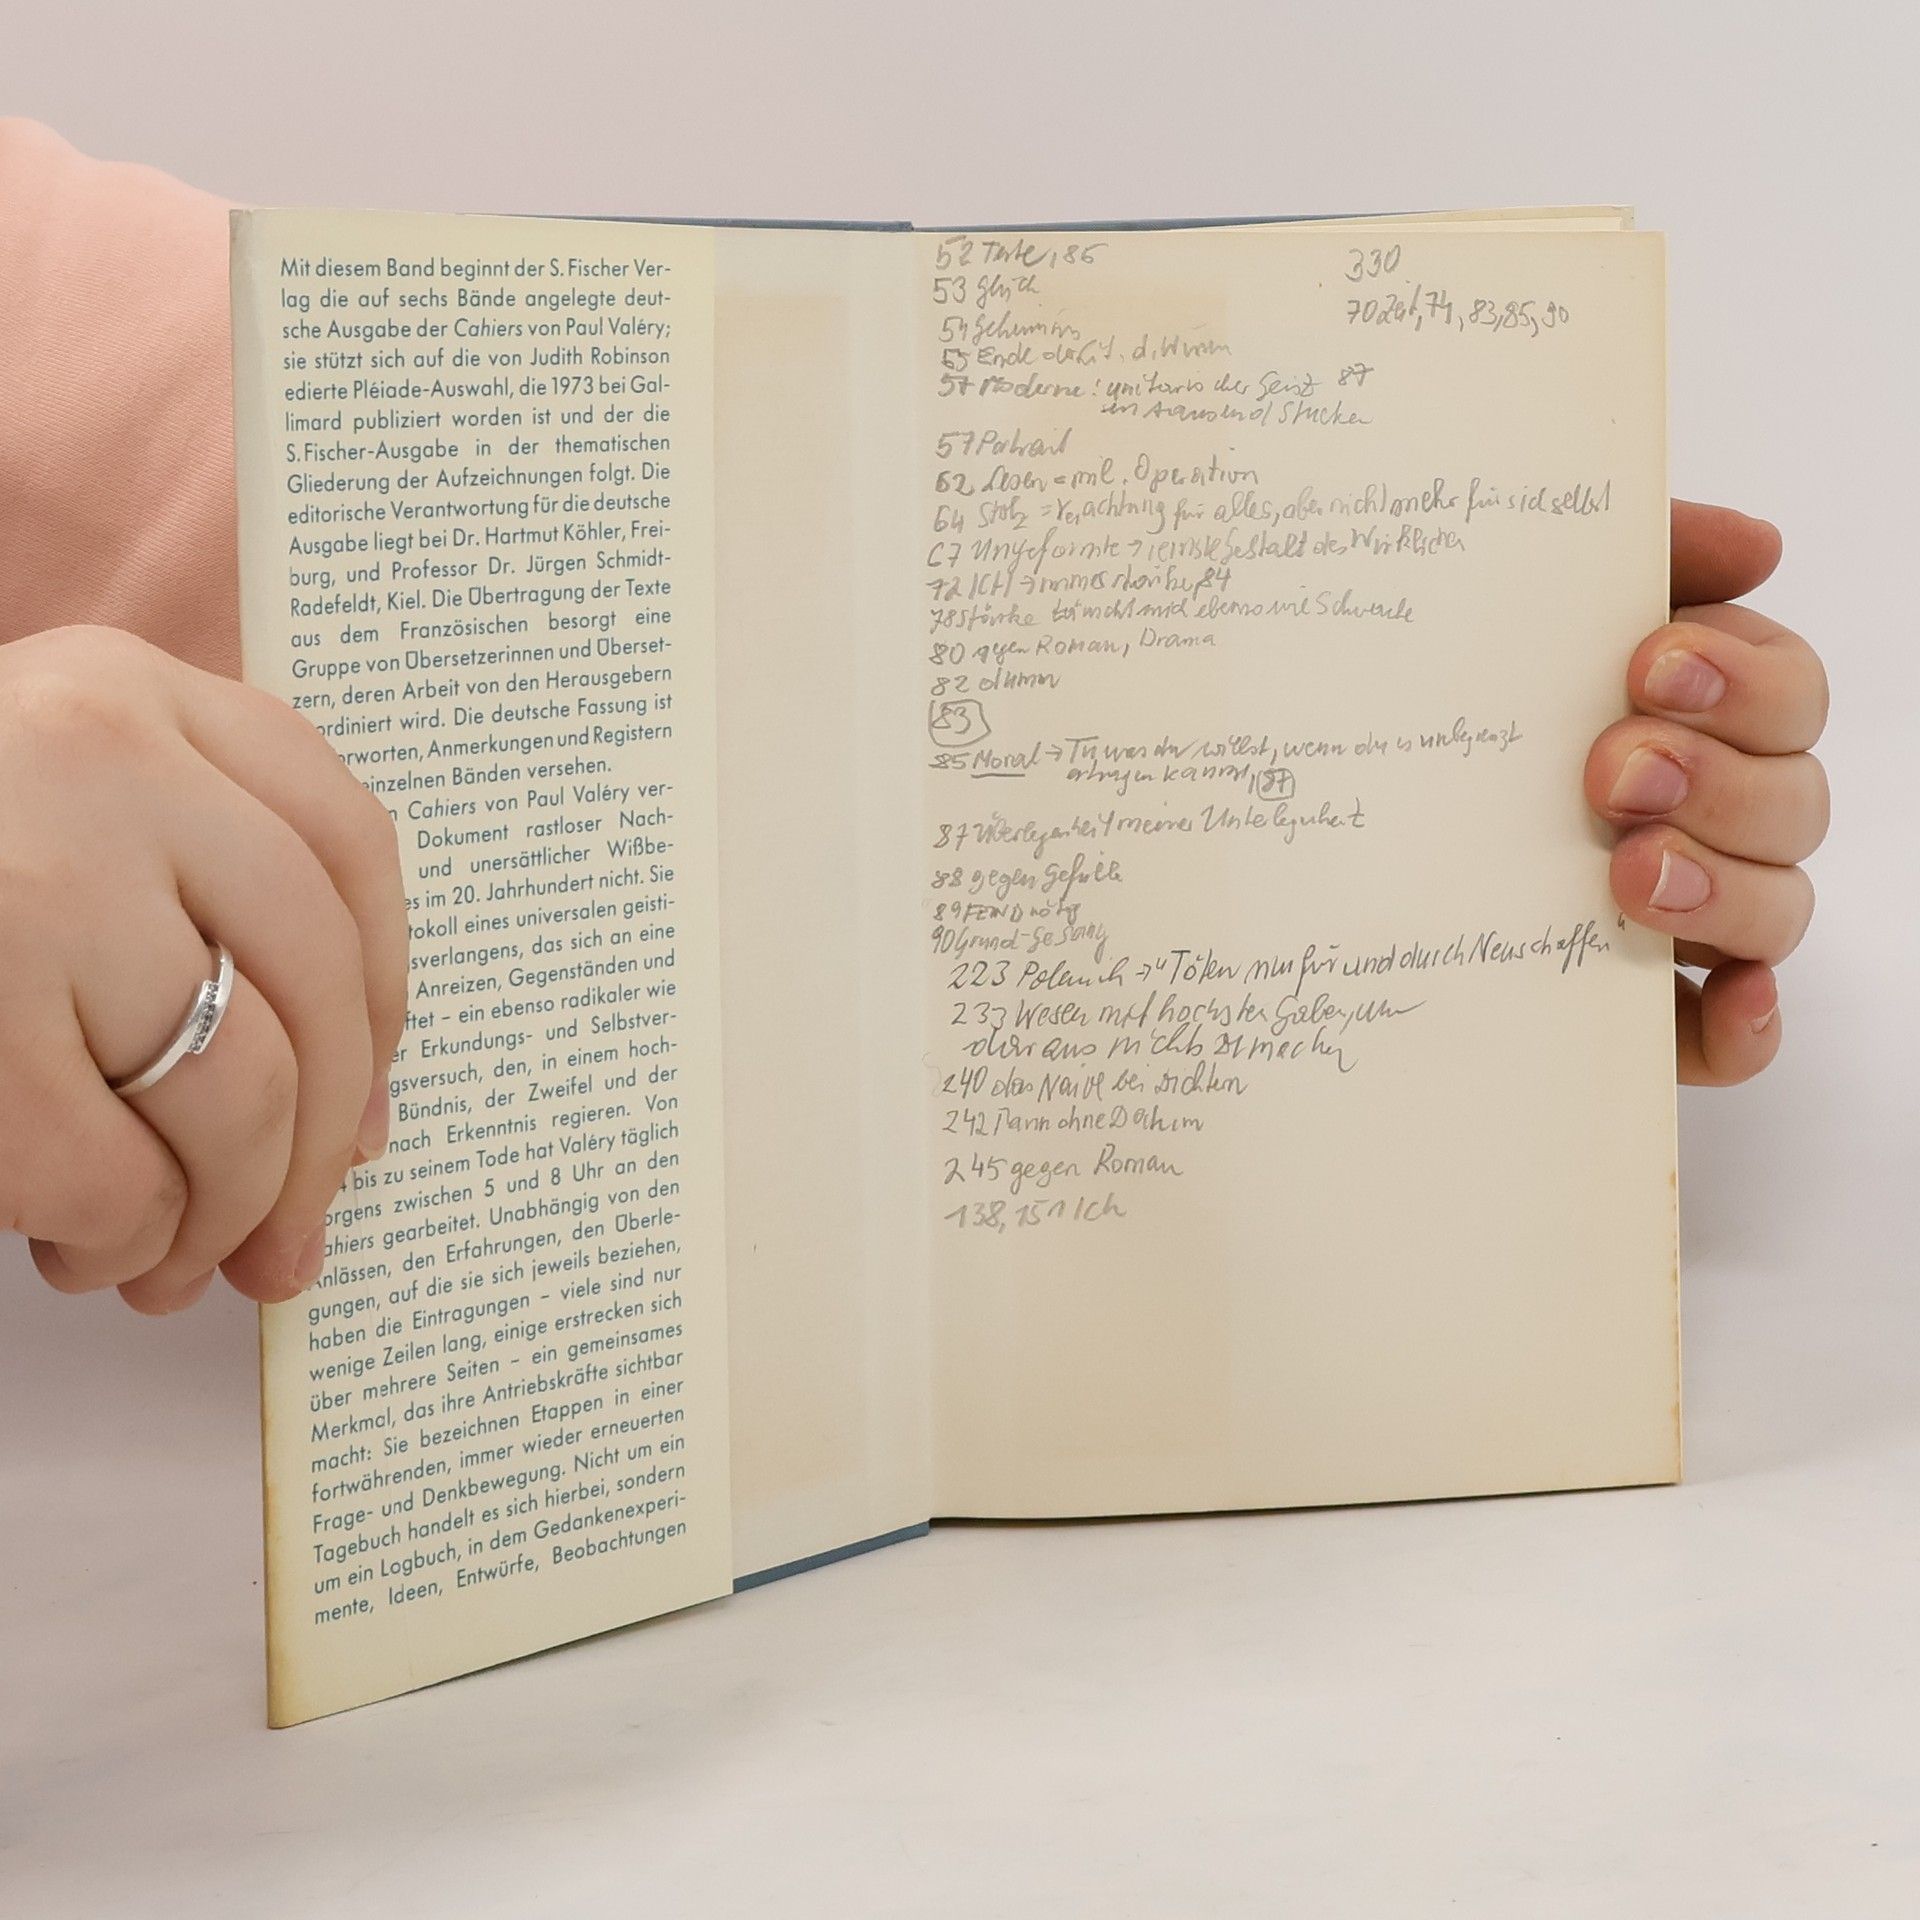 Mit diesem Band beginnt der S. Fischer Ver-
lag die auf sechs Bände angelegte deut-
sche Ausgabe der Cahiers von Paul Valéry;
sie stützt sich auf die von Judith Robinson
edierte Pléiade-Auswahl, die 1973 bei Gal-
limard publiziert worden ist und der die
S. Fischer-Ausgabe in der thematischen
Gliederung der Aufzeichnungen folgt. Die
editorische Verantwortung für die deutsche
Ausgabe liegt bei Dr. Hartmut Köhler, Frei-
burg, und Professor Dr. Jürgen Schmidt-
Radefeldt, Kiel. Die Übertragung der Texte
aus dem Französischen besorgt eine
Gruppe von Übersetzerinnen und Überset-
zern, deren Arbeit von den Herausgebern
ordiniert wird. Die deutsche Fassung ist
orworten, Anmerkungen und Registern
einzelnen Bänden versehen.
n Cahiers von Paul Valéry ver-
Dokument rastloser Nach-
und unersättlicher Wißbe-
es im 20. Jahrhundert nicht. Sie
tokoll eines universalen geisti-
sverlangens, das sich an eine
Anreizen, Gegenständen und
ftet – ein ebenso radikaler wie
er Erkundungs- und Selbstver-
gsversuch, den, in einem hoch-
Bündnis, der Zweifel und der
nach Erkenntnis regieren. Von
4 bis zu seinem Tode hat Valéry täglich
orgens zwischen 5 und 8 Uhr an den
ahiers gearbeitet. Unabhängig von den
Anlässen, den Erfahrungen, den Überle-
gungen, auf die sie sich jeweils beziehen,
haben die Eintragungen – viele sind nur
wenige Zeilen lang, einige erstrecken sich
über mehrere Seiten – ein gemeinsames
Merkmal, das ihre Antriebskräfte sichtbar
macht: Sie bezeichnen Etappen in einer
fortwährenden, immer wieder erneuerten
Frage- und Denkbewegung. Nicht um ein
Tagebuch handelt es sich hierbei, sondern
um ein Logbuch, in dem Gedankenexperi-
mente, Ideen, Entwürfe, Beobachtungen
52 Teste, 86
53
54 Geheimnis
55 Ende der Lit. d. Wissen
57 Moderne: unitarischer Geist 87
in tausend Stücken
57 Portrait
62 Lesen = mil. Operation
64 Stolz = Verachtung für alles, aber nicht mehr für sich selbst
67 Ungeformte → reinste Gestalt des Wirklichen
72 ICH → immer stärker, 84
78 Stärke täuscht mich ebenso wie Schwäche
80 gegen Roman, Drama
82 dumm
83
85 Moral → Tu, was du willst, wenn du es unbegrenzt
ertragen kannst, 87
87 Überlegenheit meiner Unterlegenheit
88 gegen Gefühle
89 FEIND nötig
90 Grund-Gesang
223 Polemik → "Töten nur für und durch Neuschaffen"
233 Wesen mit höchsten Gaben, um
daraus nichts zu machen
240 das Naive bei Dichtern
242 Mann ohne Datum
245 gegen Roman
138, 151 Ich
330
70 Zeit, 74, 83, 85, 90